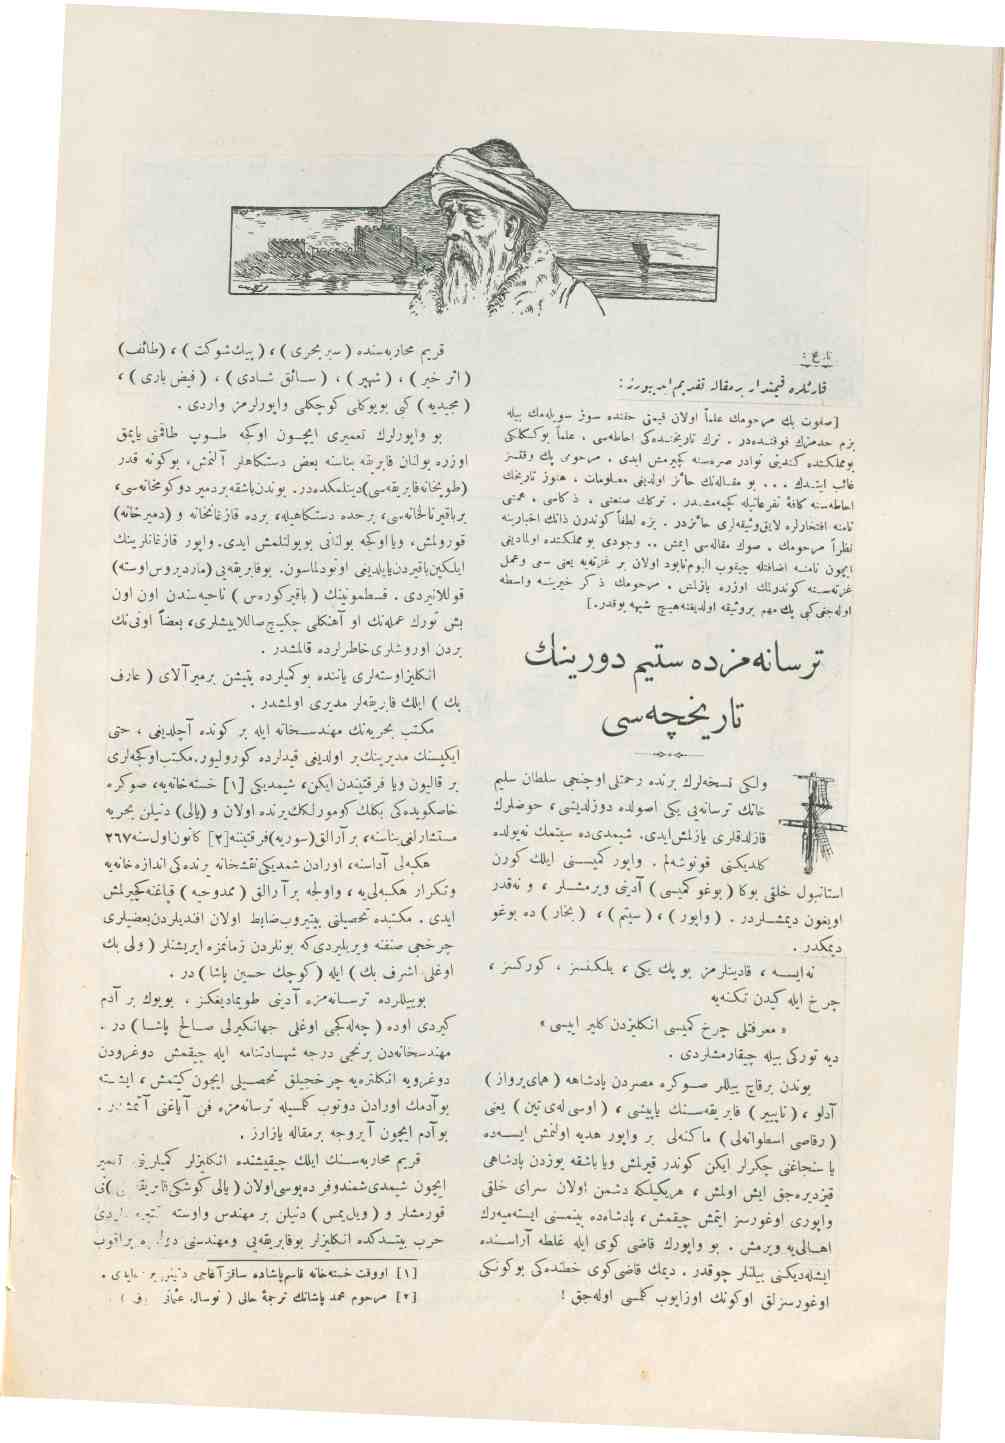 تاریخ :
قارئلره قیمتدار بر مقاله تقدیم ایدییورز :
[صفوت بك مرحومك علماً اولان قیمتی حقنده سوز سویله‌مك بیله
بزم حدمزك فوقنده‌در . ترك تاریخنده‌كی احاطه‌سی . علماً یوكسكلكی
بومملكتده كندینی نوادر صره‌سنه كچیرمش ایدی . مرحومی پك وقتسز
غائب ایتدك ... بو مقاله‌نك حائز اولدیغی معلومات ، هنوز تاریخك
احاطه‌سنه كافهٔ تفرعاتیله كچمه‌مشدر . تركك صنعتی ، ذكاسی ، همتی
نامنه افتخارلره لایق وثیقه‌لری حائزدر . بزه لطفاً كوندرن ذاتك اخبارینه
نظراً مرحومك . صوك مقاله‌سی ایمش .. وجودی بو مملكتده اولمادیغی
ایچون نامنه اضافتله چیقوب الیوم نابود اولان بر غزته‌یه یعنی سعی وعمل
غزته‌سنه كوندرلك اوزره یازلمش . مرحومك ذكر خیرینه واسطه
اوله‌جغی كبی پك مهم بر وثیقه اولدیغنه هیچ شبهه یوقدر .]
ترسانه‌مزده ستیم دورینك
تاریخچه‌سی
ولكی نسخه‌لرك برنده رحمتلی اوچنجی سلطان سلیم
خانك ترسانه‌یی یكی اصولده دوزلدیشی ، حوضلرك
قازلدقلری یازلمش ایدی. شیمدی‌ده ستیمك نه‌یولده
كلدیكنی قونوشه‌لم . واپور كمیسنی ایلك كورن
استانبول خلقی بوكا ( بوغو كمیسی ) آدینی ویرمشلر ، و نه‌قدر
اویغون دیمشلردر . ( واپور ) ، ( ستیم ) ، ( بخار ) ده بوغو
دیمكدر .
نه‌ایسه ، قادینلرمز بو پك یكی ، یلكنسز ، كوركسز ،
چرخ ایله كیدن تكنه‌یه
« معرفتلی چرخ كمیسی انكلیزدن كلیر ایپسی »
دیه توركی بیله چیقارمشلردی .
بوندن برقاچ ییللر صوكره مصردن پادشاهه ( همای‌پرواز )
آدلو ، ( ناپییر ) فابریقه‌سنك یاپیشی ، ( اوسی‌له‌ی‌تین ) یعنی
( رقاصی اسطوانه‌لی ) ماكنه‌لی بر واپور هدیه اولنمش ایسه‌ده
یا سنجاغنی چكرلر ایكن كوندر قیرلمش ویا باشقه یوزدن پادشاهی
قیزدیره‌جق ایش اولمش ، هریكیلكه دشمن اولان سرای خلقی
واپوری اوغورسز ایتمش چیقمش، پادشاه‌ده بینمسنی ایسته‌میه‌رك
اهالی‌یه ویرمش . بو واپورك قاضی كوی ایله غلطه آراسنده
ایشله‌دیكنی بیلنلر چوقدر . دیمك قاضی‌كوی خطنده‌كی بوكونكی
اوغورسزلق اوكونك اوزایوب كلمسی اوله‌جق !
قریم محاربه‌سنده ( سیر بحری ) ، ( پیك شوكت ) ، (طائف)
( اثر خیر ) ، ( شهپر ) ، ( سائق شادی ) ، ( فیض باری ) ،
( مجیدیه ) كبی بویوكلی كوچكلی واپورلرمز واردی .
بو واپورلرك تعمیری ایچون اوكجه طوپ طاقمنی یاپمق
اوزره بولنان فابریقه بناسنه بعض دستكاهلر آلنمش، بوكونه قدر
(طوپخانه فابریقه‌سی) دینلمكده‌در. بوندن باشقه بردمیر دوكومخانه‌سی،
برباقیر نالخانه‌سی، برحده دستكاهیله، برده قازغانخانه و (دمیرخانه)
قورولمش، ویا اوكجه بولنانی بویولنلمش ایدی. واپور قازغانلرینك
ایلكین باقیردن یاپلدیغی اونودلماسون. بوفابریقه‌یی (ماردیروس اوسته)
قوللانیردی . قسطمونینك ( باقیركوره‌سی ) ناحیه‌سندن اون اون
بش تورك عمله‌نك او آهنكلی چكیچ صاللاییشلری، بعضاً اونی‌نك
بردن اوروشلری خاطرلرده قالمشدر .
انكلیز اوسته‌لری یاننده بو كمیلرده یتیشن برمیرآلای ( عارف
بك ) ایلك فابریقه‌لر مدیری اولمشدر .
مكتب بحریه‌نك مهندسخانه ایله بر كونده آچلدیغی ، حتی
ایكیسنك مدیرینك بر اولدیغی قیدلرده كورولیور. مكتب اوكجه‌لری
بر قالیون ویا فرقتیندن ایكن، شیمدیكی [۱] خسته‌خانه‌یه، صوكره
خاصكویده‌كی بكلك كومورلكك یرنده اولان و (یالی) دنیلن بحریه
مستشارلغی بناسنه، بر آرالق (سوریه) فرقتیننه [۲] كانون‌اول سنه ۲٦٧
هكبه‌لی آداسنه، اورادن شمدیكی نقشخانه یرنده‌كی اندازه‌خانه‌یه
وتكرار هكبه‌لی‌یه ، واولجه بر آرالق ( ممدوحیه ) قپاغنه كچیرلمش
ایدی . مكتبده تحصیلنی بیتیروب ضابط اولان افندیلردن بعضیلری
چرخجی صنفنه ویریلیردی كه بونلردن زمانمزه ایریشنلر ( ولی بك
اوغلی اشرف بك ) ایله ( كوچك حسین پاشا ) در .
بوییللرده ترسانه‌مزه آدینی طویمادیغكز ، بویوك بر آدم
كیردی اوده ( چه‌له‌كجی اوغلی جهانكیرلی صالح پاشا ) در .
مهندسخانه‌دن برنجی درجه شهادتنامه ایله چیقمش دوغرودن
دوغرویه انكلتره‌یه چرخجیلق تحصیلی ایچون كیتمش ، ایشته
بوآدمك اورادن دونوب كلمسیله ترسانه‌مزه فن آیاغنی آتمشدر .
بوآدم ایچون آیریجه برمقاله یازارز .
قریم محاربه‌سنك ایلك چیقیشنده انكلیزلر كمیلرینی تعمیر
ایچون شیمدی شمندوفر ده‌پوسی اولان ( یالی كوشكی فابریقه‌سی ) نی
قورمشلر و ( ویل‌یمس ) دنیلن بر مهندس واوسته كتیرمشلردی
حرب بیتدكده انكلیزلر بوفابریقه‌یی ومهندسنی دولته براقوب
[۱] اووقت خسته‌خانه قاسم‌پاشاده ساقز آغاجی دنیلن یرده ایدی .
[۲] مرحوم محمد پاشانك ترجمهٔ حالی ( نوسال عثمانی